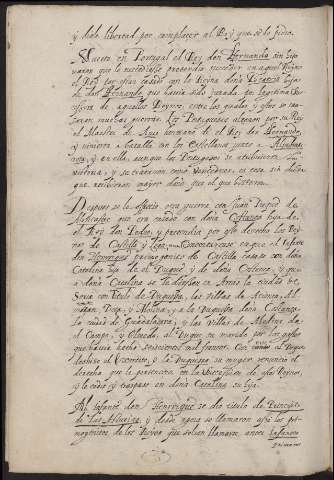 y dado libertad por complacer al Rey que se lo pidio.
Muerto en Portugal el Rey don Hernando sin hijo
varon que le sucediesse pretendia suceder en aquel Reyno
el Rey por estar casado con la Reyna doña Beatriz hija
de don Hernando, que havia sido jurada por legitima
de aquellos Reynos, entre los quales y ellos se
muchas guerras. Los Portugueses algaron por su Rey
el Maestre de Avis hermano de el Rey don Hernando,
y vinieron a batalla con los Castellanos junto a
y en ella, aunque los Portugueses se atribuieron la
victoria, y se trataron como vencedores, es cosa sin duda
que recibieron mayor daño que el que hizieron.
Despues se le ofrecio otra guerra con Juan Duque de
Alencastre que era casado con doña Costanza hija de
el Rey don Pedro, y pretendia por ello derecho los Rey
nos de Castilla y Leon, en que el Infante
don Henrrique primogenito de Castilla casase con doña
Catalina hija de el Duque y de doña Costanza, y que
a doña Catalina se le diessen en Arras la ciudad de
Soria con titulo de Duquessa, las villas de Atienza, Al
mazan, Deça, y Molina, y a la Duquessa doña Costanza
la ciudad de Guadalajara, y las villas de Medina de
el Campo, y Olmedo, al Duque su marido por los gastos
que havia hecho seiscientos mil francos. Con esto el Duque
deshizo el exercito, y la Duquessa su muger renunció el
derecho que le pertenecia en la sucession de estos Reynos,
y le cedio y traspaso en doña Catalina su hija.
Al Infante don Henrrique se dio titulo de Principe
de las Asturias, y desde agora se llamaron assi los pri
mogenitos de los Reyes que solian llamarse antes Infantes